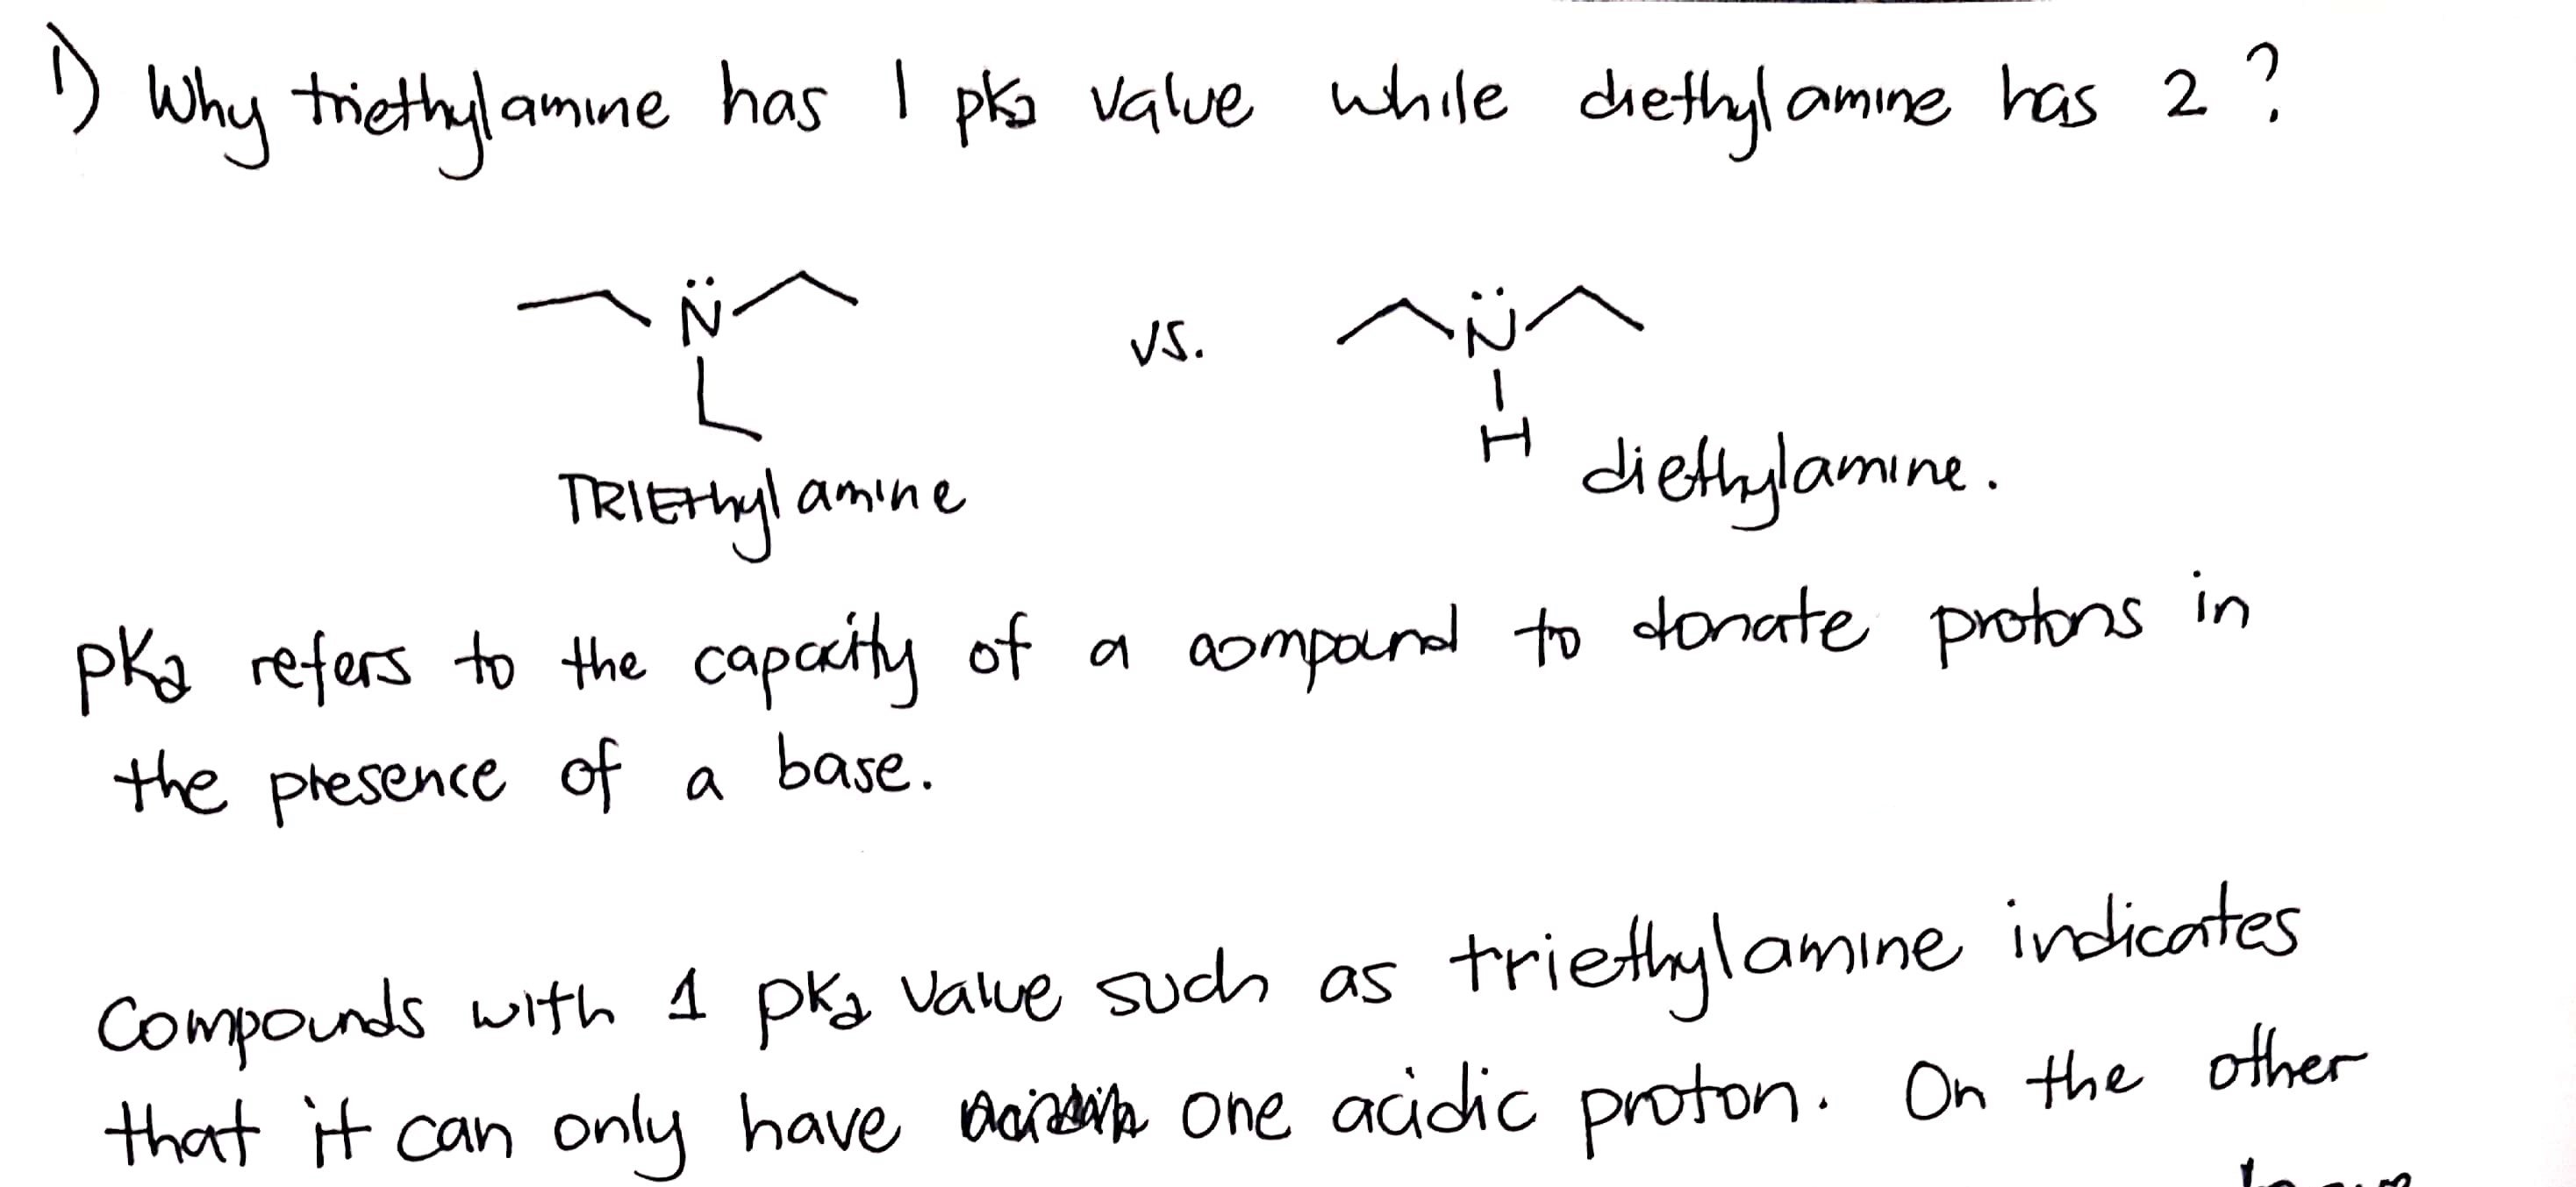 1) Why triethylamine has 1 pka value while diethylamine has 2 ?
N
N
vs.
H
TRIEthylamine
diethylamine.
pKa refers to the capacity of a compound to donate protons in
the presence of a base.
Compounds with 1 pka value such as triethylamine indicates
that it can only have one acidic proton. On the other